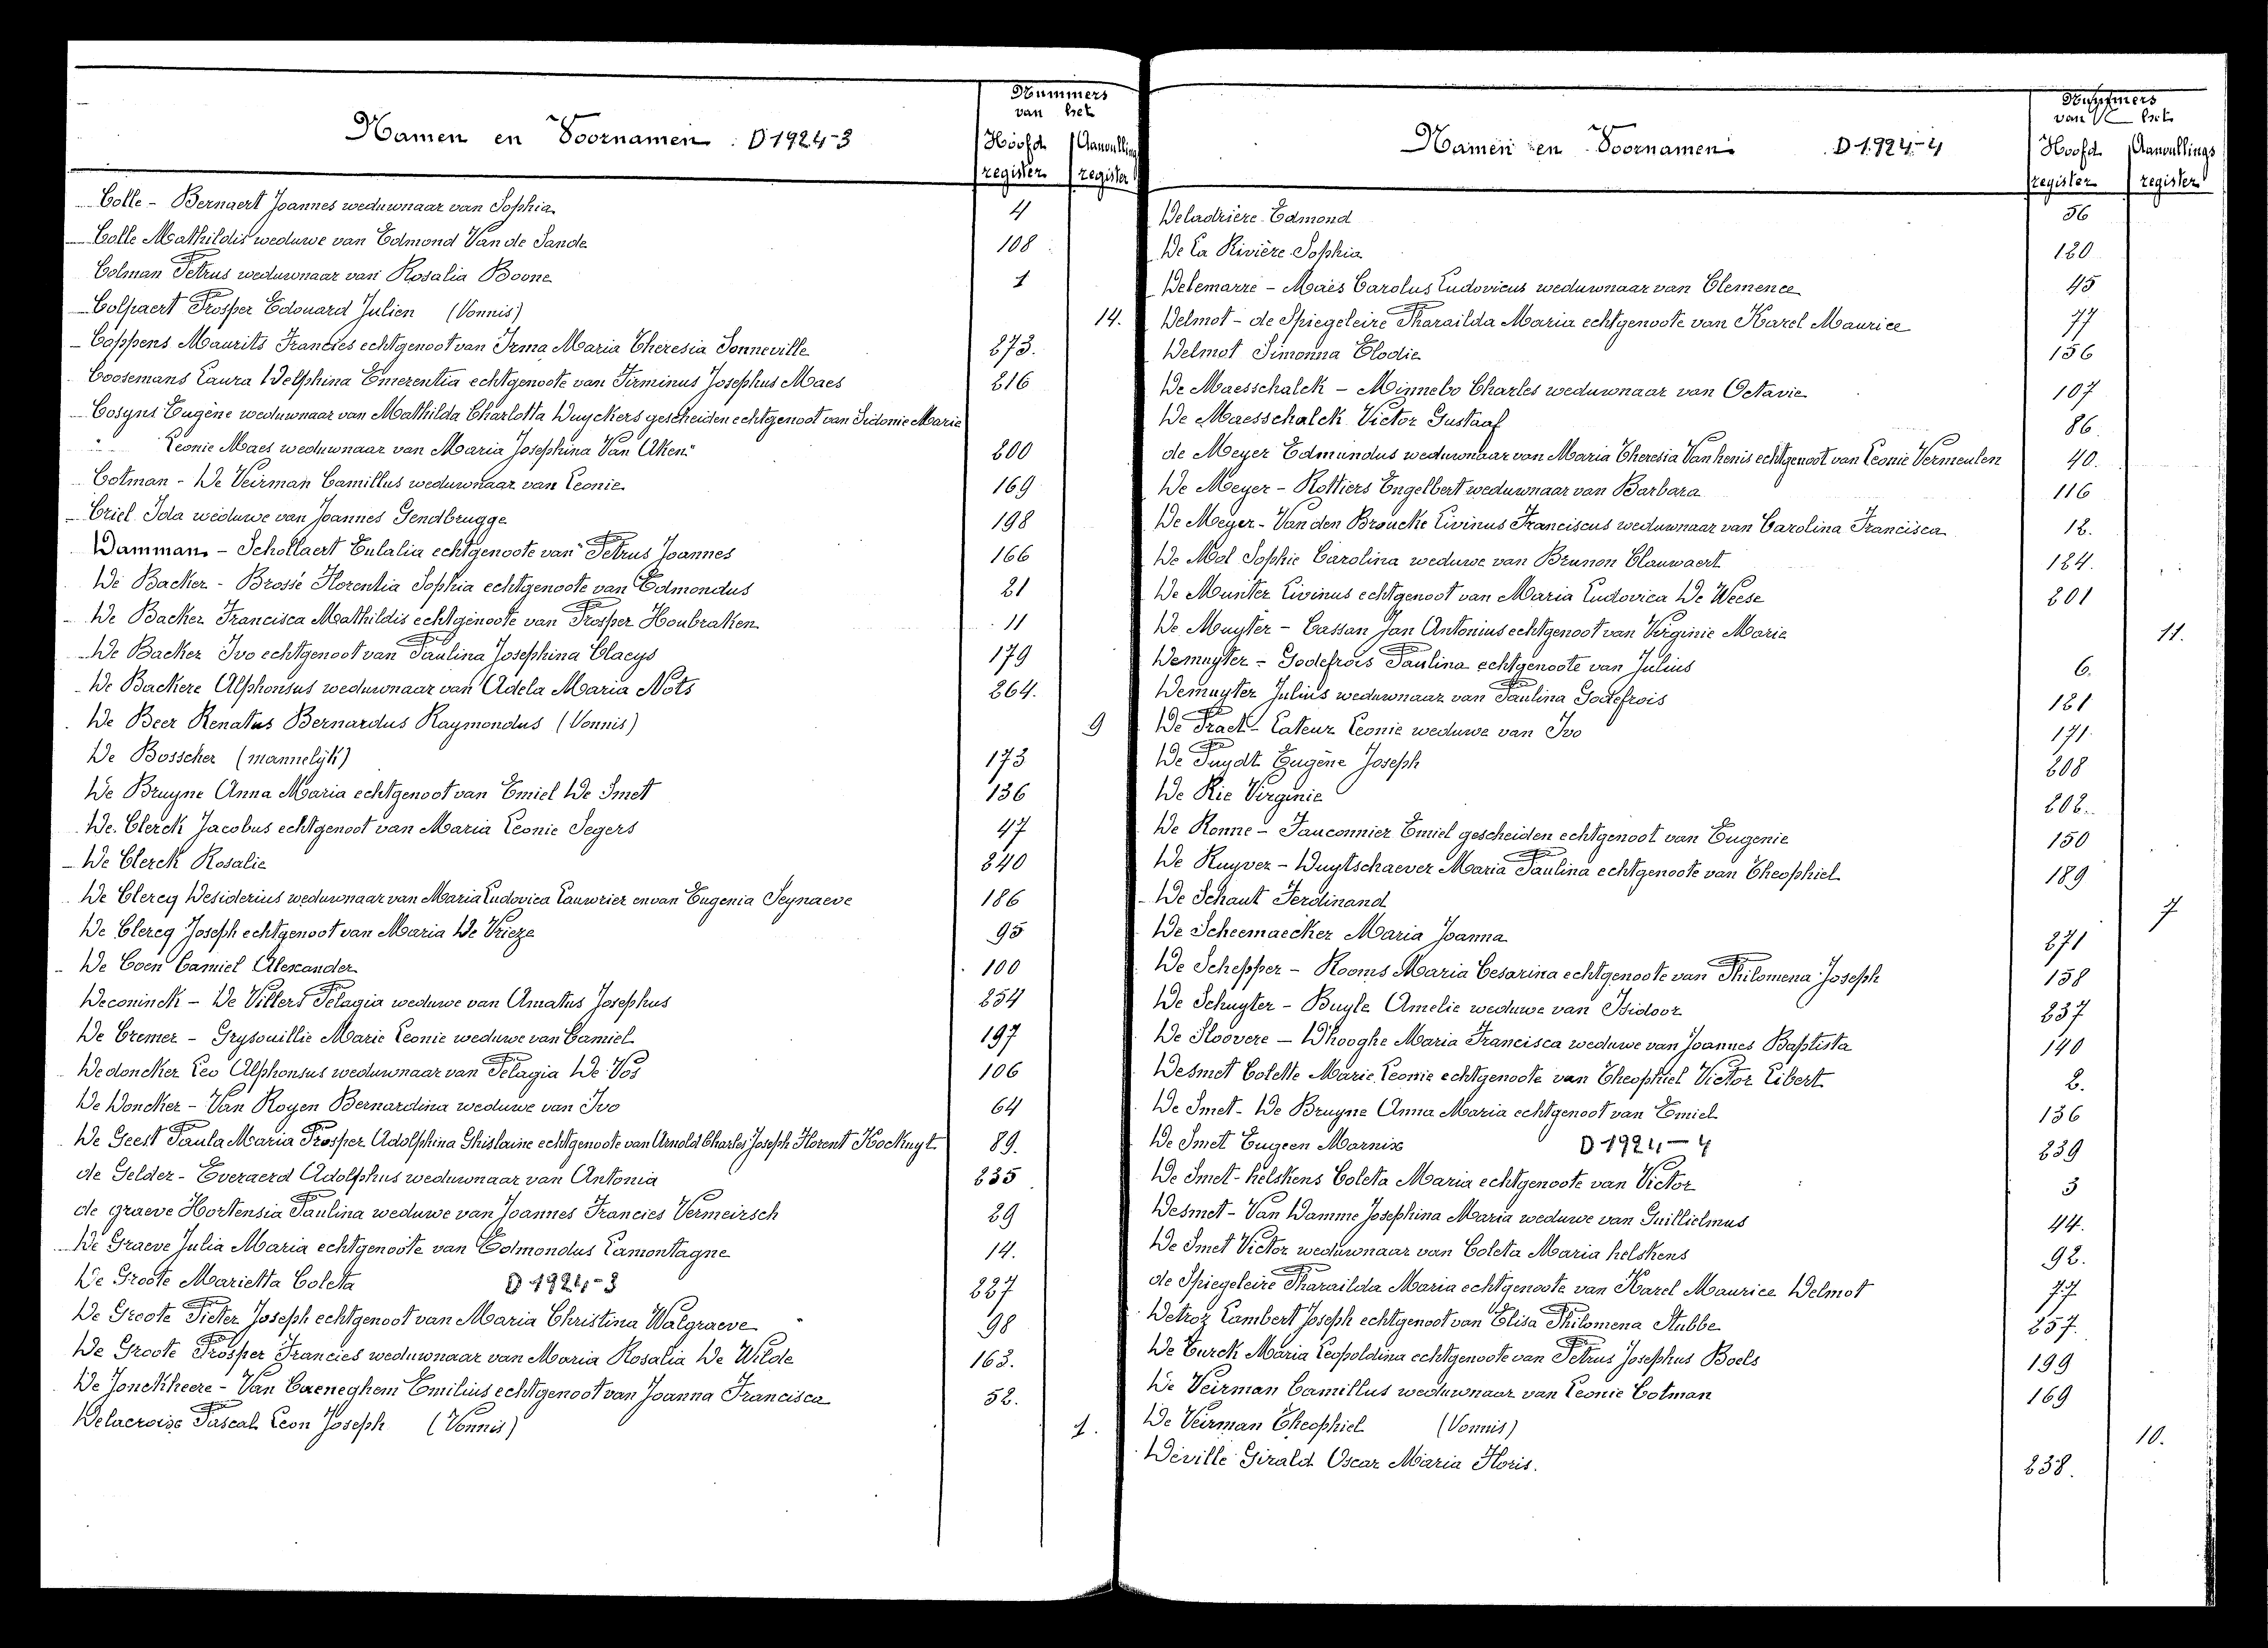 Namen en Voornamen : D 1924-3
Nummers van het
Hoofd register
Aanvullings register
Colle - Bernaert Joannes weduwnaar van Sophia 4
Colle Mathildis weduwe van Edmond Van de Sande 108
Colman Petrus weduwnaar van Rosalia Boone 1
Colpaert Prosper Edouard Julien (Vonnis) 14.
Coppens Maurits Francies echtgenoot van Irma Maria Theresia Sonneville 273.
Coosemans Laura Delphina Emerentia echtgenoote van Firminus Josephus Maes 216
Cosyns Eugène weduwnaar van Mathilda Charlotta Duyckers gescheiden echtgenoot van Sidonie Marie
" Leonie Maes weduwnaar van Maria Josephina Van Aken" 200
Cotman - De Veirman Camillus weduwnaar van Leonie 169
Criel Ida weduwe van Joannes Gendbrugge 198
Damman - Schollaert Eulalia echtgenoote van Petrus Joannes 166
De Backer - Brossé Florentia Sophia echtgenoote van Edmondus 21
De Backer Francisca Mathildis echtgenoote van Prosper Houbraken 11
De Backer Ivo echtgenoot van Paulina Josephina Claeys 179
De Backere Alphonsus weduwnaar van Adela Maria Nots 264.
De Beer Renatus Bernardus Raymondus (Vonnis) 9
De Bosscher (mannelijk) 173
De Bruyne Anna Maria echtgenoot van Emiel De Smet 136
De Clerck Jacobus echtgenoot van Maria Leonie Segers 47
De Clerck Rosalie 240
De Clercq Desiderius weduwnaar van Maria Ludovica Lauwrier en van Eugenia Seynaeve 186
De Clercq Joseph echtgenoot van Maria De Vrieze 95
De Coen Camiel Alexander 100
Deconinck - De Villers Pelagia weduwe van Amatus Josephus 254
De Cremer - Grysouillie Marie Leonie weduwe van Camiel 197
Dedoncker Leo Alphonsus weduwnaar van Pelagia De Vos 106
De Doncker - Van Royen Bernardina weduwe van Ivo 64
De Geest Paula Maria Prosper Adolphina Ghislaine echtgenoote van Arnold Charles Joseph Florent Kockuyt 89.
de Gelder - Everaerd Adolphus weduwnaar van Antonia 235
de graeve Hortensia Paulina weduwe van Joannes Francies Vermeirsch 29
De Graeve Julia Maria echtgenoote van Edmondus Lamontagne 14.
De Groote Marietta Coleta D 1924-3 227
De Groote Pieter Joseph echtgenoot van Maria Christina Walgraeve 98
De Groote Prosper Francies weduwnaar van Maria Rosalia De Wilde 163.
De Jonckheere - Van Caeneghem Emilius echtgenoot van Joanna Francisca 52.
Delacroix Pascal Leon Joseph (Vonnis) 1.
Namen en Voornamen D 1924-4
Nummers van het
Hoofd register
Aanvullings register
Deladrière Edmond 56
De La Rivière Sophia 120
Delemarre - Maes Carolus Ludovicus weduwnaar van Clemence 45
Delmot - de Spiegeleire Pharailda Maria echtgenoote van Karel Maurice 77
Delmot Simonna Elodie 156
De Maesschalck - Minnebo Charles weduwnaar van Octavie 107
De Maesschalck Victor Gustaaf 86
de Meyer Edmundus weduwnaar van Maria Theresia Vanhenis echtgenoot van Leonie Vermeulen 40.
De Meyer - Rottiers Engelbert weduwnaar van Barbara 116
De Meyer - Van den Broucke Livinus Franciscus weduwnaar van Carolina Francisca 12.
De Mol Sophie Carolina weduwe van Brunon Clauwaert 124.
De Munter Livinus echtgenoot van Maria Ludovica De Weese 201
De Muyter - Cassan Jan Antonius echtgenoot van Virginie Marie 11.
Demuyter - Godefrois Paulina echtgenoote van Julius 6.
Demuyter Julius weduwnaar van Paulina Godefrois 121
De Praet - Lateur Leonie weduwe van Ivo 171.
De Puydt Eugène Joseph 208
De Rie Virginie 202.
De Ronne - Fauconnier Emiel gescheiden echtgenoot van Eugenie 150
De Ruyver - Duytschaever Maria Paulina echtgenoote van Theophiel 189
De Schaut Ferdinand 7
De Scheemaecker Maria Joanna 271
De Schepper - Rooms Maria Cesarina echtgenoote van Philomena Joseph 158
De Schuyter - Buyle Amelie weduwe van Isidoor 237
De Sloovere - D'hooghe Maria Francisca weduwe van Joannes Baptista 140
Desmet Colette Marie Leonie echtgenoote van Theophiel Victor Libert 2.
De Smet - De Bruyne Anna Maria echtgenoot van Emiel 136
De Smet Eugeen Marnix D 1924-4 239
De Smet - helskens Coleta Maria echtgenoote van Victor 3
Desmet - Van Damme Josephina Maria weduwe van Guillielmus 44.
De Smet Victor weduwnaar van Coleta Maria helskens 92.
de Spiegeleire Pharailda Maria echtgenoote van Karel Maurice Delmot 77
Detroz Lambert Joseph echtgenoot van Elisa Philomena Stubbe 257.
De Turck Maria Leopoldina echtgenoote van Petrus Josephus Boels 199
De Veirman Camillus weduwnaar van Leonie Cotman 169
De Veirman Theophiel (Vonnis) 10.
Deville Girald Oscar Maria Floris. 238.